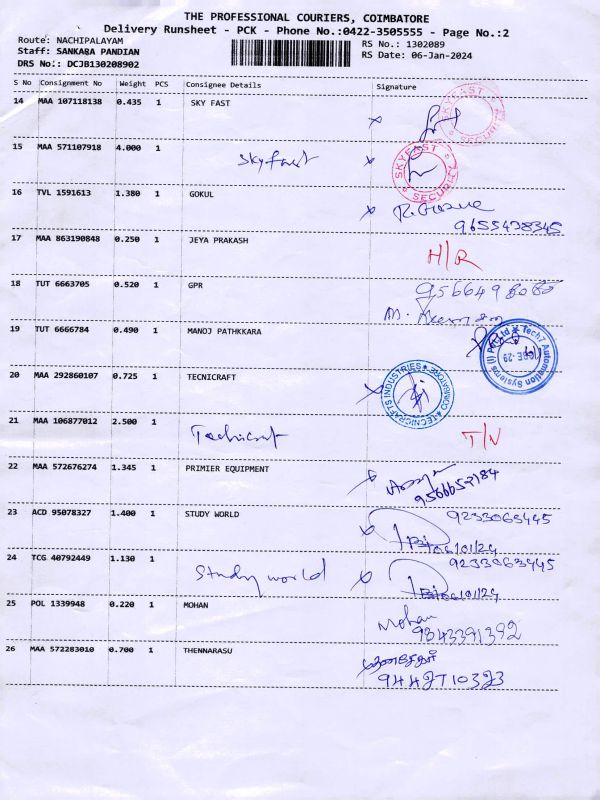 THE PROFESSIONAL COURIERS, COIMBATORE
Delivery Runsheet - PCK - Phone No.:0422-3505555 - Page No.:2
Route: NACHIPALAYAM RS No.: 1302089
Staff: SANKARA PANDIAN RS Date: 06-Jan-2024
DRS No.: DCJB130208902
S No Consignment No Weight PCS Consignee Details Signature
14 MAA 107118138 0.435 1 SKY FAST
SKYFAST SECURITY
15 MAA 571107918 4.000 1 Skyfast
SKYFAST SECURITY
16 TVL 1591613 1.380 1 GOKUL
9655478345
17 MAA 863190848 0.250 1 JEYA PRAKASH H/R
18 TUT 6663705 0.520 1 GPR
19 TUT 6666784 0.490 1 MANOJ PATHKKARA
Tech7 Automation Systems (I) Pvt Ltd
20 MAA 292860107 0.725 1 TECNICRAFT
TECNICRAFTS INDUSTRIES COIMBATORE
21 MAA 106877012 2.500 1 Tecnicraft
22 MAA 572676274 1.345 1 PRIMIER EQUIPMENT
23 ACD 95078327 1.400 1 STUDY WORLD
9233063445
06/01/24
24 TCG 40792449 1.130 1 Study world 9233063445
06/01/24
25 POL 1339948 0.220 1 MOHAN Mohan
9343391392
26 MAA 572283010 0.700 1 THENNARASU